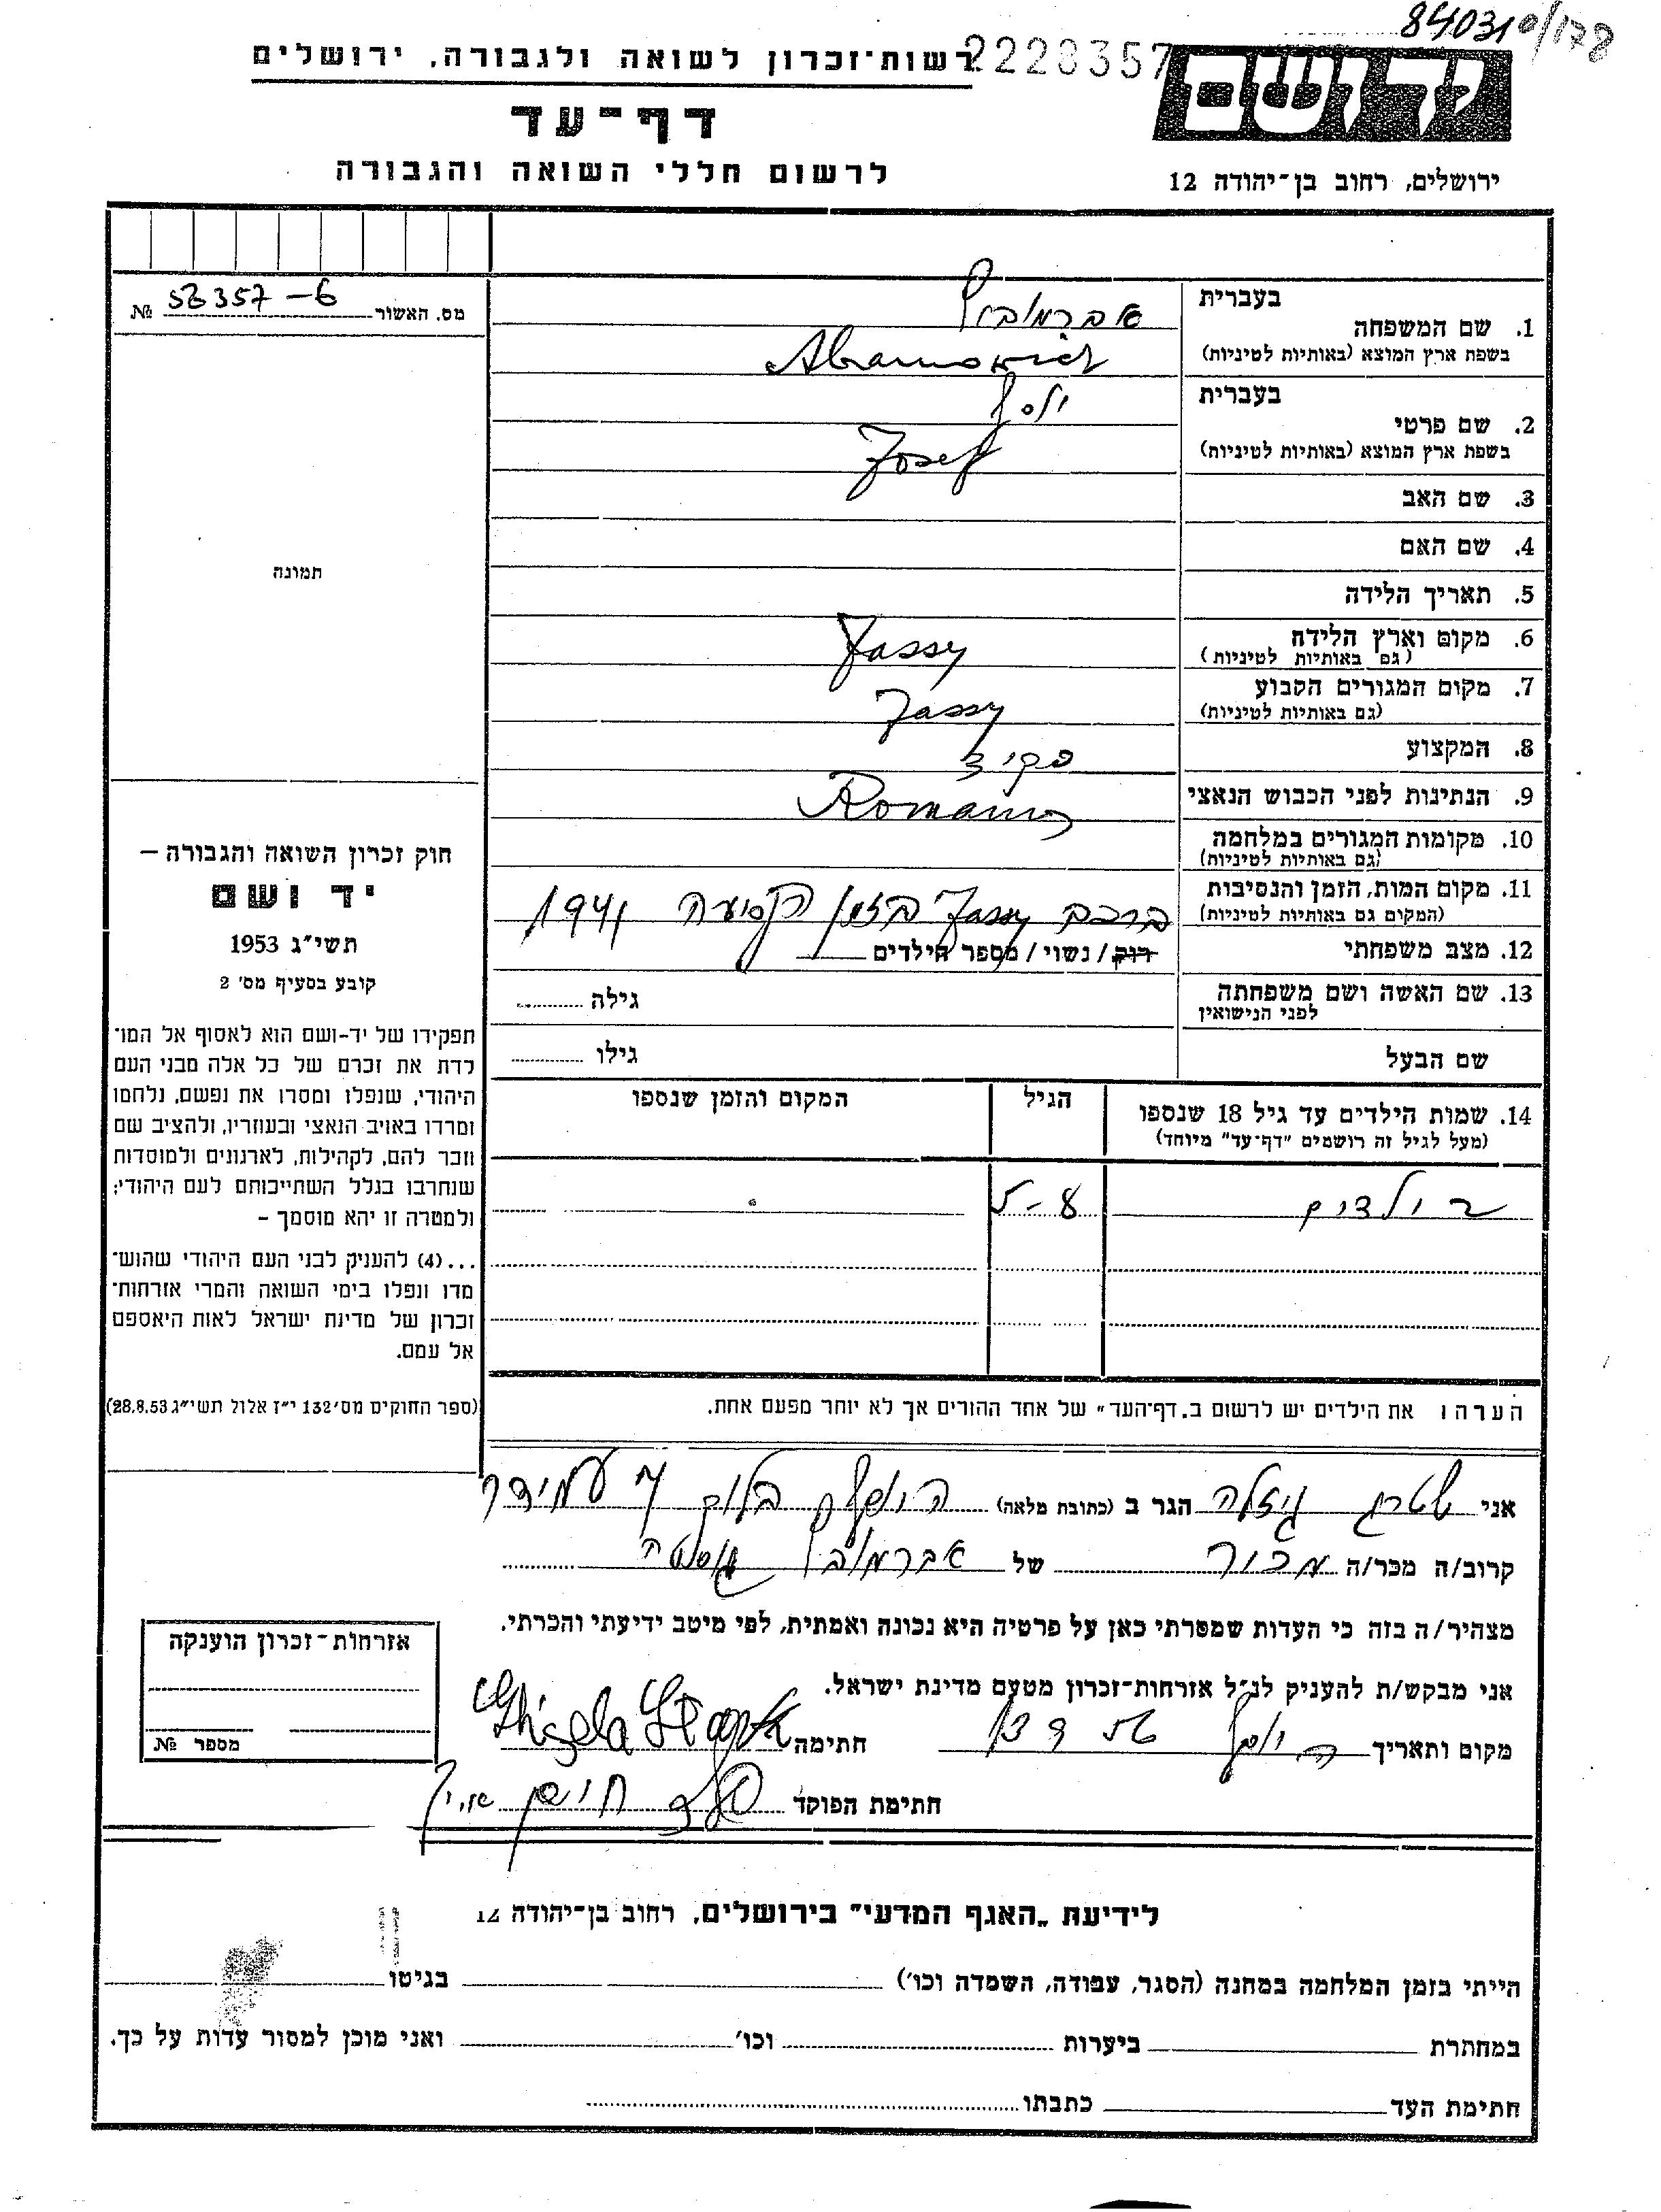 84031 0/178
2228357
רשות־זכרון לשואה ולגבורה, ירושלים
יד ושם
דף־עד
לרשום חללי השואה והגבורה
ירושלים, רחוב בן־יהודה 12
מס. האשור 53357-6 №
תמונה
בעברית אברמוביץ
1. שם המשפחה
בשפת ארץ המוצא (באותיות לטיניות) Abramowicz
בעברית יוסף
2. שם פרטי
בשפת ארץ המוצא (באותיות לטיניות) Josef
3. שם האב
4. שם האם
5. תאריך הלידה
6. מקום וארץ הלידה Jassy
(גם באותיות לטיניות)
7. מקום המגורים הקבוע Jassy
(גם באותיות לטיניות)
8. המקצוע פקיד
9. הנתינות לפני הכבוש הנאצי
10. מקומות המגורים במלחמה
(גם באותיות לטיניות)
11. מקום המות, הזמן והנסיבות ברכב Jassy בזמן הנסיעה 1941
(המקום גם באותיות לטיניות)
12. מצב משפחתי רוק / נשוי / מספר הילדים
13. שם האשה ושם משפחתה גילה
לפני הנישואין
שם הבעל גילו
14. שמות הילדים עד גיל 18 שנספו הגיל המקום והזמן שנספו
(מעל לגיל זה רושמים "דף־עד" מיוחד)
2 ילדים 5-8
הערה: את הילדים יש לרשום ב„דף־העד" של אחד ההורים אך לא יותר מפעם אחת.
חוק זכרון השואה והגבורה –
יד ושם
תשי"ג 1953
קובע בסעיף מס' 2
תפקידו של יד-ושם הוא לאסוף אל המו־
לדת את זכרם של כל אלה מבני העם
היהודי, שנפלו ומסרו את נפשם, נלחמו
ומרדו באויב הנאצי ובעוזריו, ולהציב שם
וזכר להם, לקהילות, לארגונים ולמוסדות
שנחרבו בגלל השתייכותם לעם היהודי;
ולמטרה זו יהא מוסמך –
...(4) להעניק לבני העם היהודי שהוש־
מדו ונפלו בימי השואה והמרי אזרחות־
זכרון של מדינת ישראל לאות היאספם
אל עמם.
(ספר החוקים מס' 132 י"ז אלול תשי"ג 28.8.53)
אני שטרק גיזלה הגר ב (כתובת מלאה) בלוק עמידר
קרוב/ה מכר/ה של אברמוביץ
מצהיר/ה בזה כי העדות שמסרתי כאן על פרטיה היא נכונה ואמתית, לפי מיטב ידיעתי והכרתי.
אני מבקש/ת להעניק לנ"ל אזרחות־זכרון מטעם מדינת ישראל.
מקום ותאריך חתימה Ghisela
חתימת הפוקד
אזרחות־זכרון הוענקה
מספר №
לידיעת „האגף המדעי" בירושלים, רחוב בן־יהודה 12
הייתי בזמן המלחמה במחנה (הסגר, עבודה, השמדה וכו') בגיטו
במחתרת ביערות וכו' ואני מוכן למסור עדות על כך.
חתימת העד כתבתו